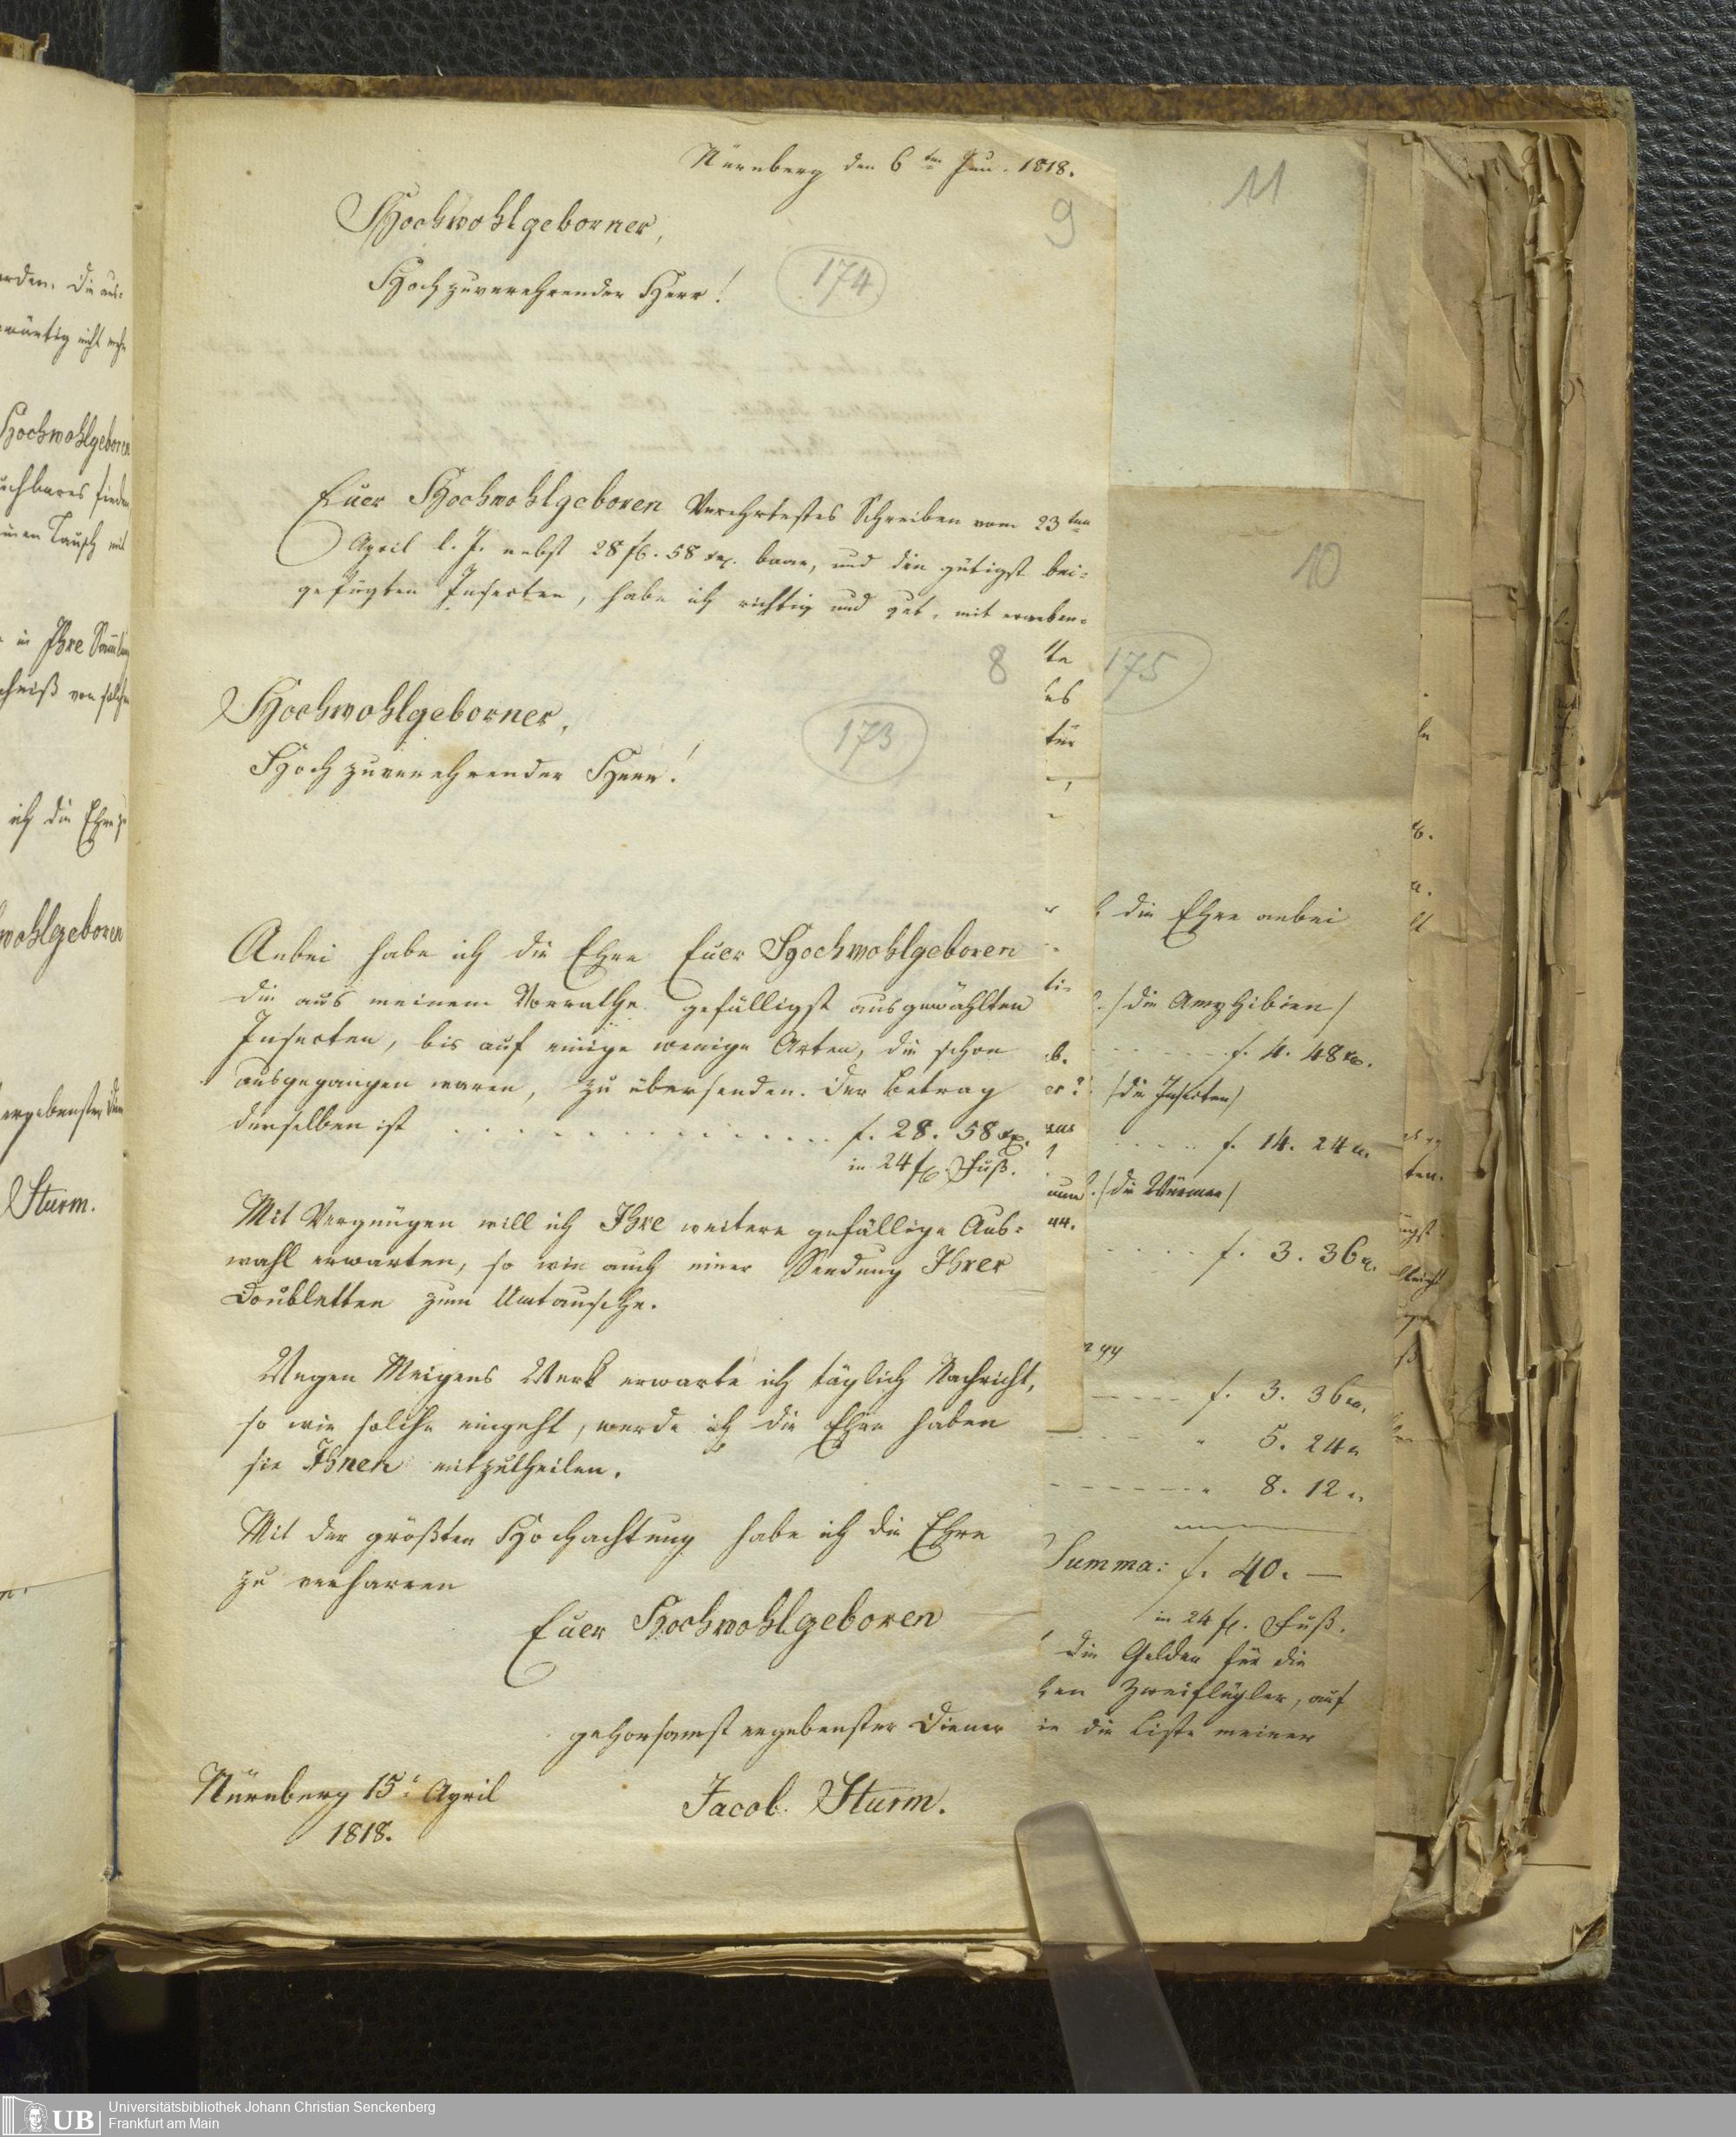 Nürnberg den 6ten Jun. 1818.
9
Hochwohlgeborner,
Hochzuverehrender Herr!
174
Euer Hochwohlgeboren Verehrtestes Schreiben vom 23ten
April l. J. nebst 28 fl. 58 xr. baar, und die gütigst bei-
gefügten Insecten, habe ich richtig und gut, mit
8
Hochwohlgeborner,
Hochzuverehrender Herr!
173
Anbei habe ich die Ehre Euer Hochwohlgeboren
die aus meinem Vorrathe gefälligst ausgewählten
Insecten, bis auf einige wenige Arten, die schon
ausgegangen waren, zu übersenden. Der Betrag
derselben ist . . . . . . . . . . . . . . f. 28. 58 xr.
in 24 fl. Fuß.
Mit Vergnügen will ich Ihre weitere gefällige Aus-
wahl erwarten, so wie auch einer Sendung Ihrer
Doubletten zum Umtausche.
Wegen Meigens Werk erwarte ich täglich Nachricht,
so wie solche eingeht, werde ich die Ehre haben
sie Ihnen mitzutheilen.
Mit der größten Hochachtung habe ich die Ehre
zu verharren
Euer Hochwohlgeboren
gehorsamst ergebenster Diener
Jacob Sturm.
Nürnberg 15: April
1818.
11
10
175
die Ehre anbei
/die Amphibien/
f. 4. 48 xr.
/die Insecten/
f. 14. 24 xr.
/die Würmer/
f. 3. 36 xr.
f. 3. 36 xr.
" 5. 24 xr.
" 8. 12 xr.
Summa: f. 40. —
in 24 fl. Fuß.
die Gelder für die
Zweiflügler, auf
in die Liste meiner
die aus-
wärtig nicht mehr
Hochwohlgeboren
finden
Tausch mit
in Ihre
von
ich die Ehre
wohlgeboren
ergebenster
Sturm.
UB
Universitätsbibliothek Johann Christian Senckenberg
Frankfurt am Main